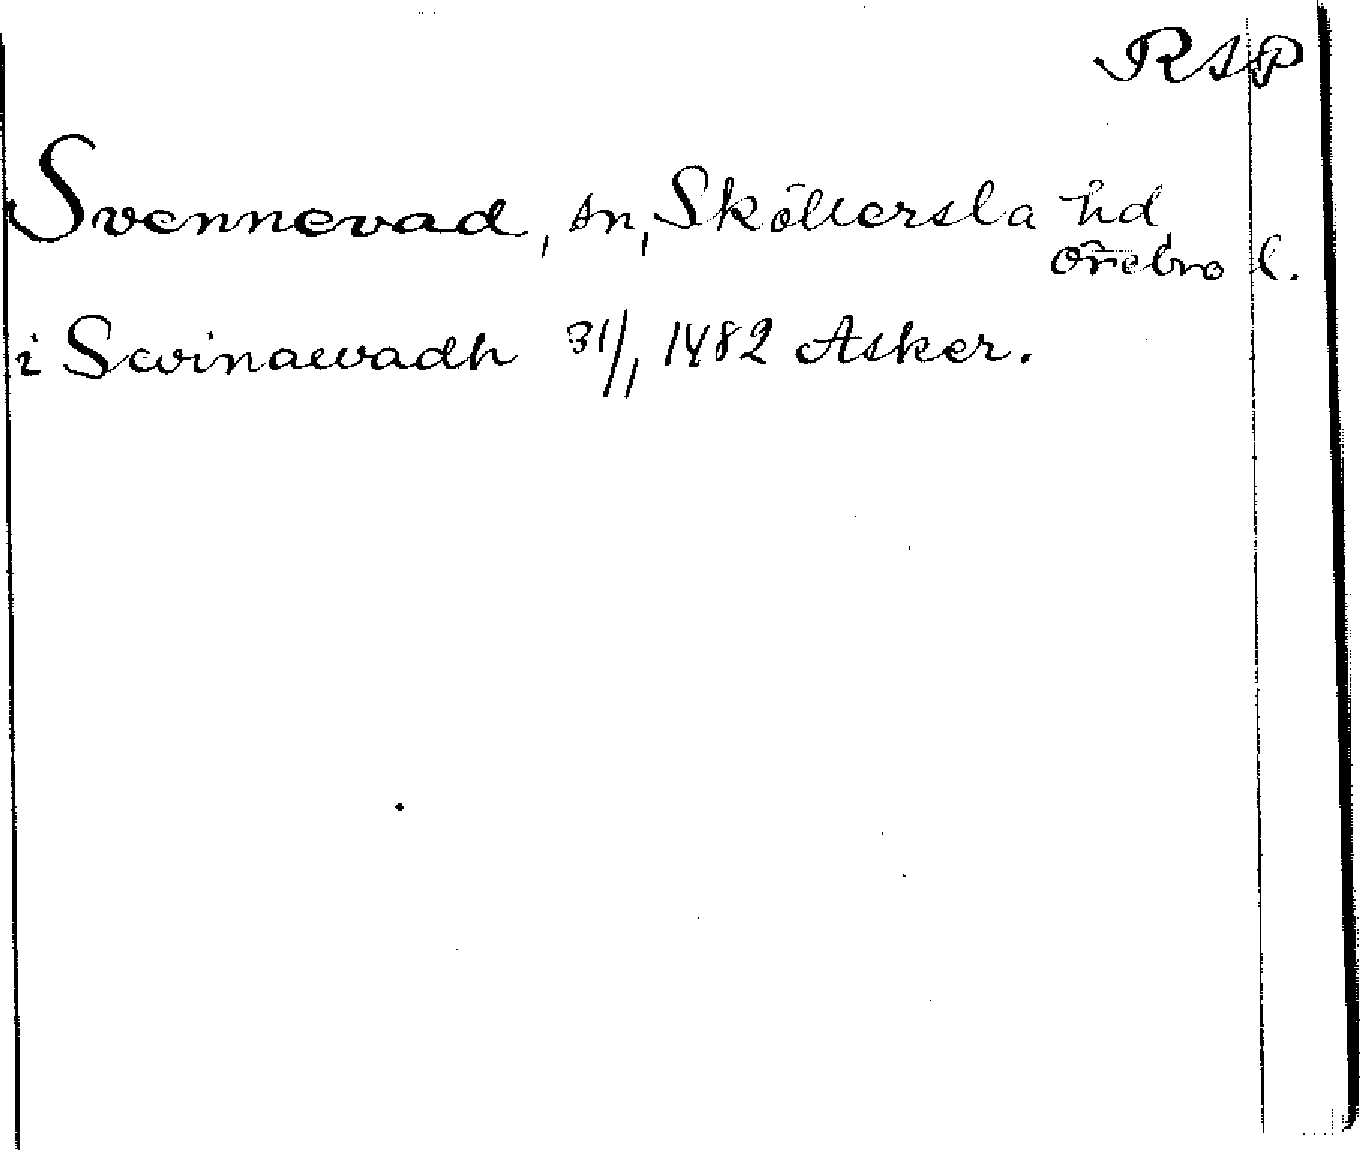 RAP
Svennevad, sn, Sköllersta hd,
Örebro l.
i Swinawadh 31/1 1482 Asker.